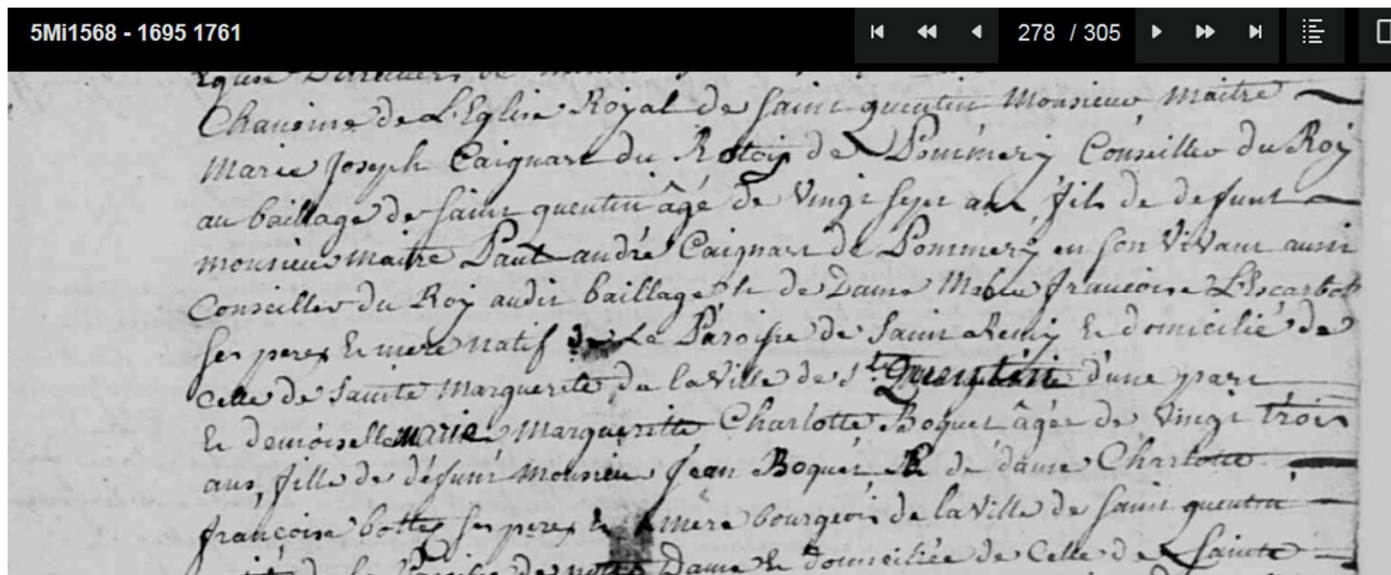 5Mi1568 - 1695 1761
278 / 305
Chanoine de L'Eglise Royal de saint quentin Monsieur maitre
Marie joseph Caignart du Rotoy de Pommery Conseiller du Roy
au baillage de saint quentin âgé de vingt sept ans fils de defunt
monsieur maitre Paul andré Caignart de Pommery en son vivant aussi
Conseiller du Roy audit baillage et de Dame françoise L'Escarbot
ses peres et mere natif de La Paroisse de saint Remy et domicilié de
celle de sainte marguerite de la ville de st Quentin d'une part
et demoiselle marie marguerite Charlotte Boquet âgée de vingt trois
ans, fille de défunt monsieur jean Boquet et de dame Charlotte
françoise bottée ses peres et mere bourgeois de la ville de saint quentin
de la Paroisse de notre Dame et domiciliée de Celle de Sainte